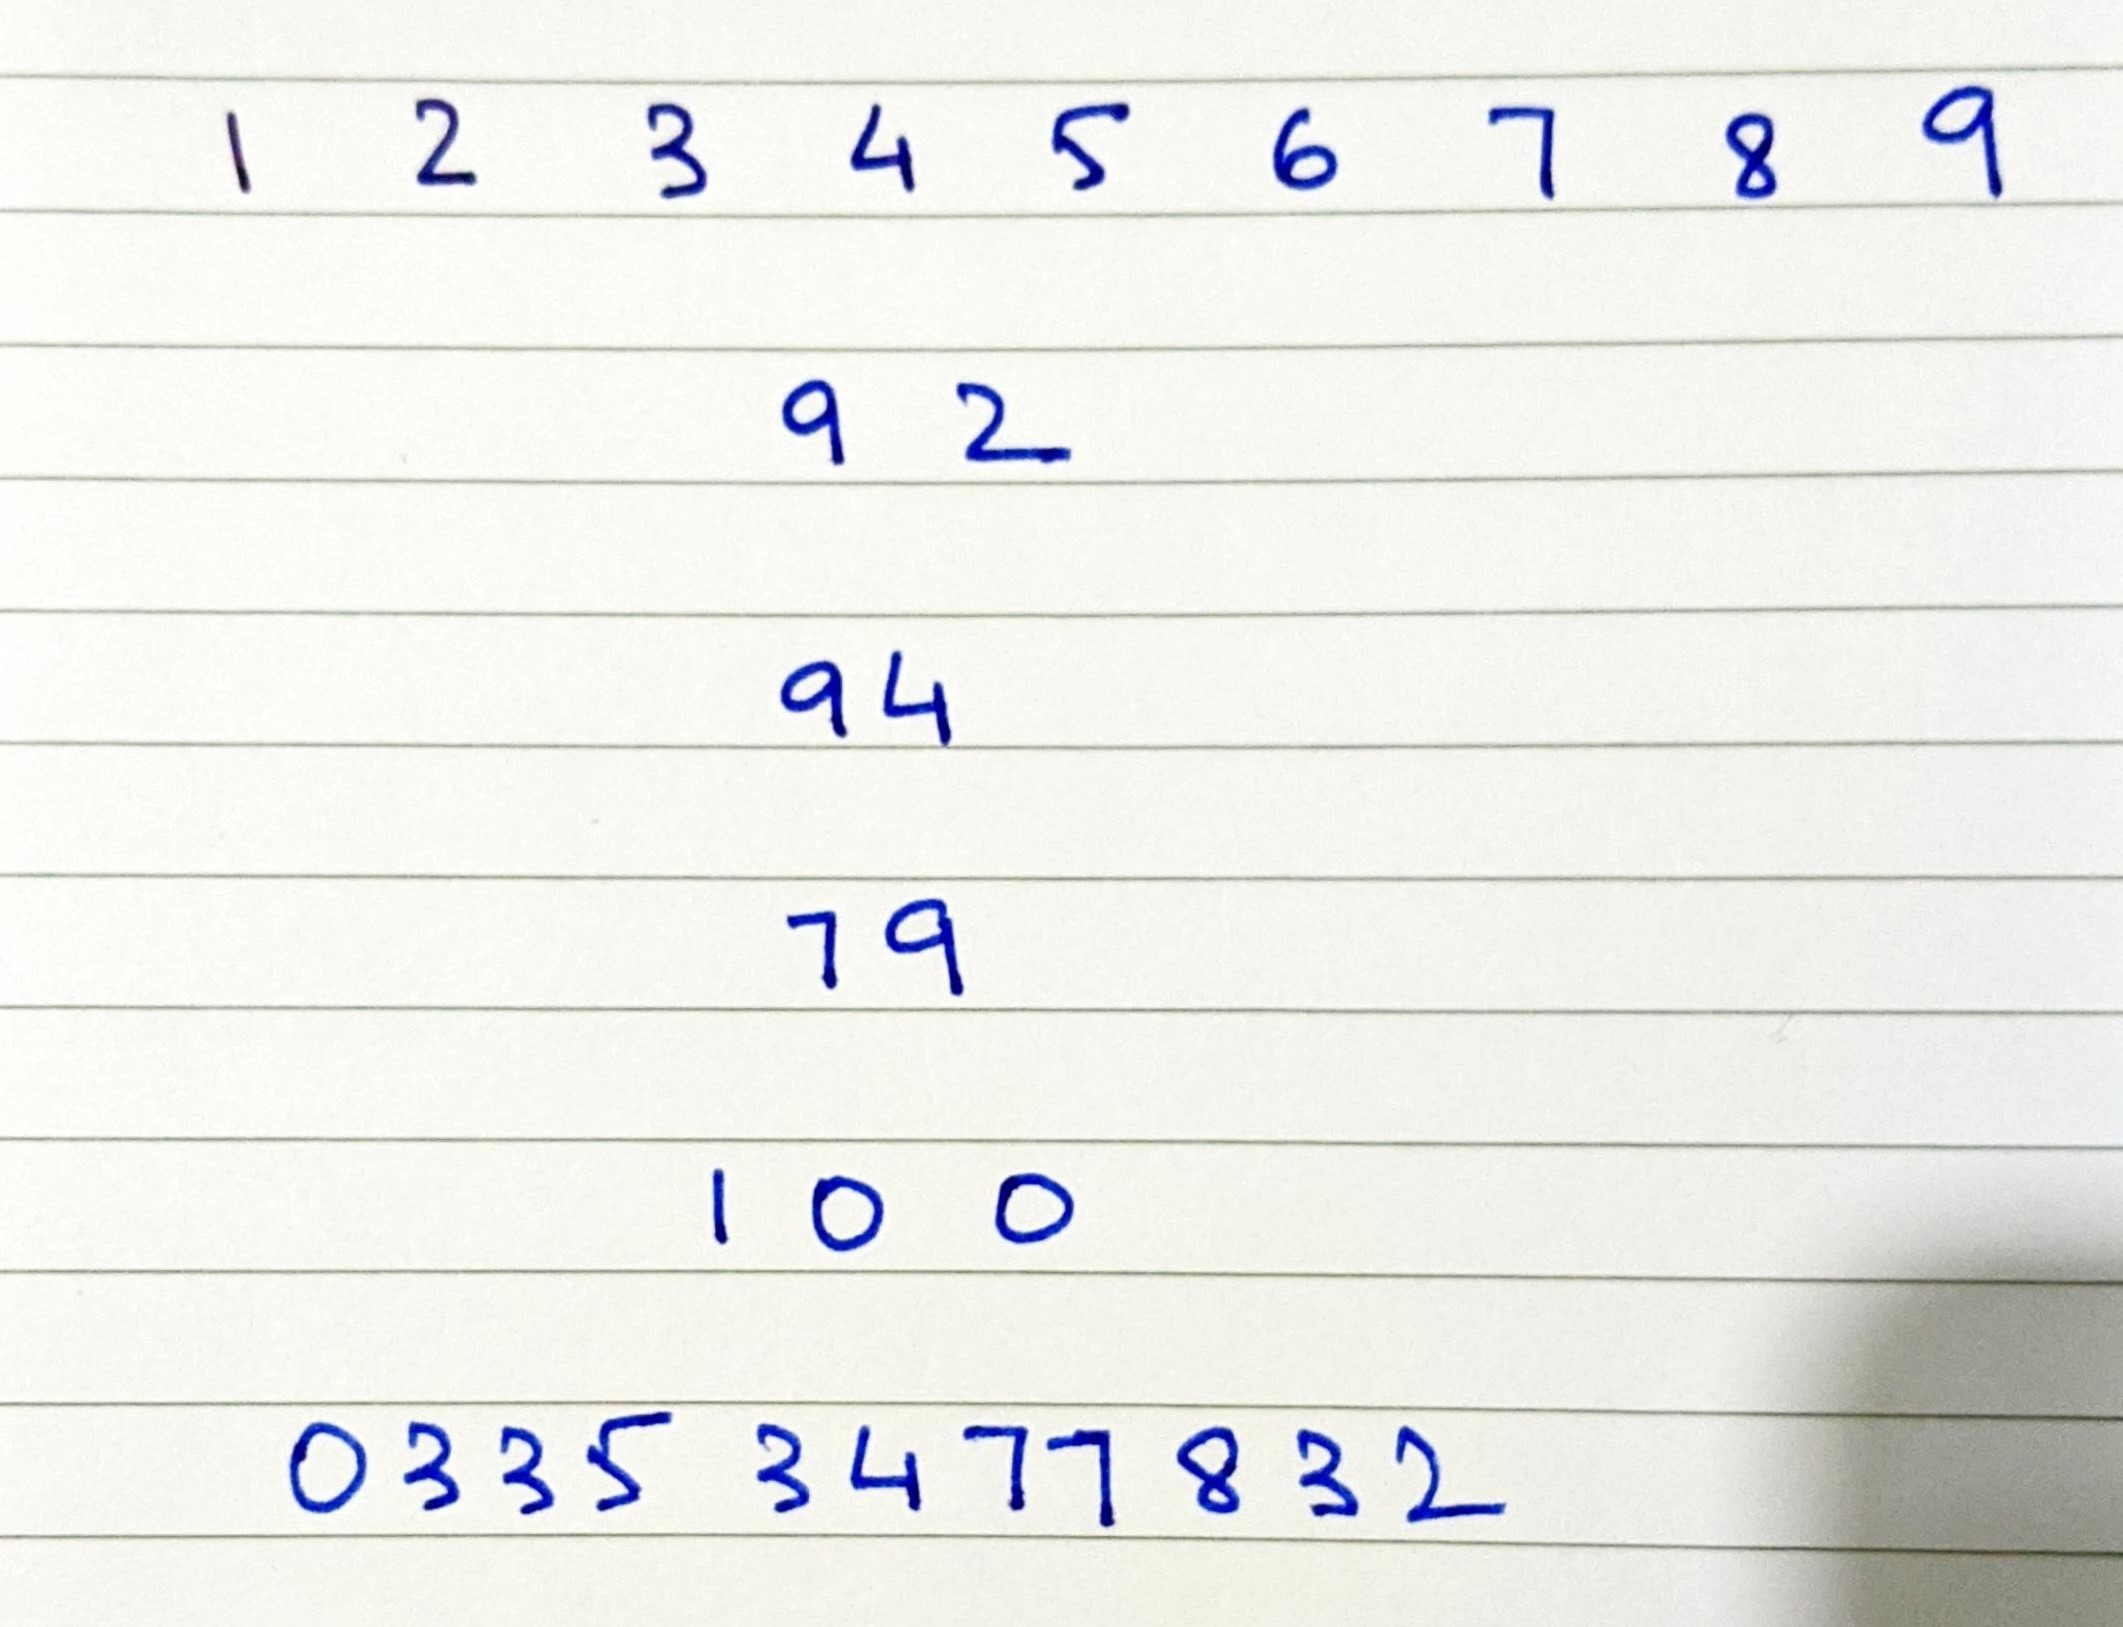 1 2 3 4 5 6 7 8 9
9 2
94
79
1 0 0
0335 3477832